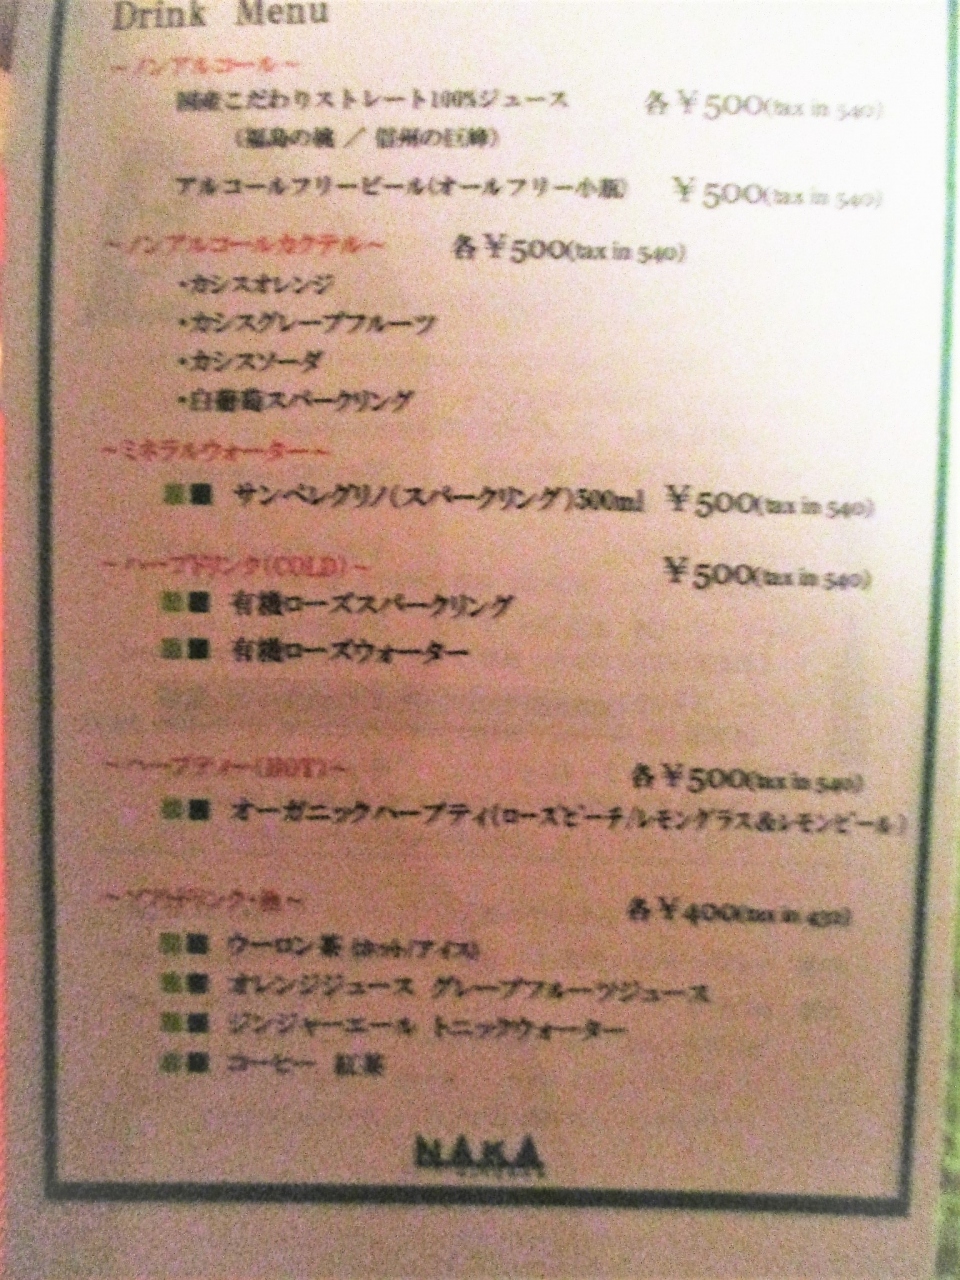 Drink Menu
～ノンアルコール～
国産こだわりストレート100%ジュース 各￥500(tax in 540)
（福島の桃 ／ 信州の巨峰）
アルコールフリービール(オールフリー小瓶) ￥500(tax in 540)
～ノンアルコールカクテル～ 各￥500(tax in 540)
・カシスオレンジ
・カシスグレープフルーツ
・カシスソーダ
・白葡萄スパークリング
～ミネラルウォーター～
サンペレグリノ(スパークリング)500ml ￥500(tax in 540)
～ハーブドリンク(COLD)～ ￥500(tax in 540)
有機ローズスパークリング
有機ローズウォーター
～ハーブティー(HOT)～ 各￥500(tax in 540)
オーガニックハーブティ(ローズピーチ/レモングラス&レモンピール)
～ソフトドリンク・他～ 各￥400(tax in 432)
ウーロン茶 (ホット/アイス)
オレンジジュース グレープフルーツジュース
ジンジャーエール トニックウォーター
コーヒー 紅茶
NAKA